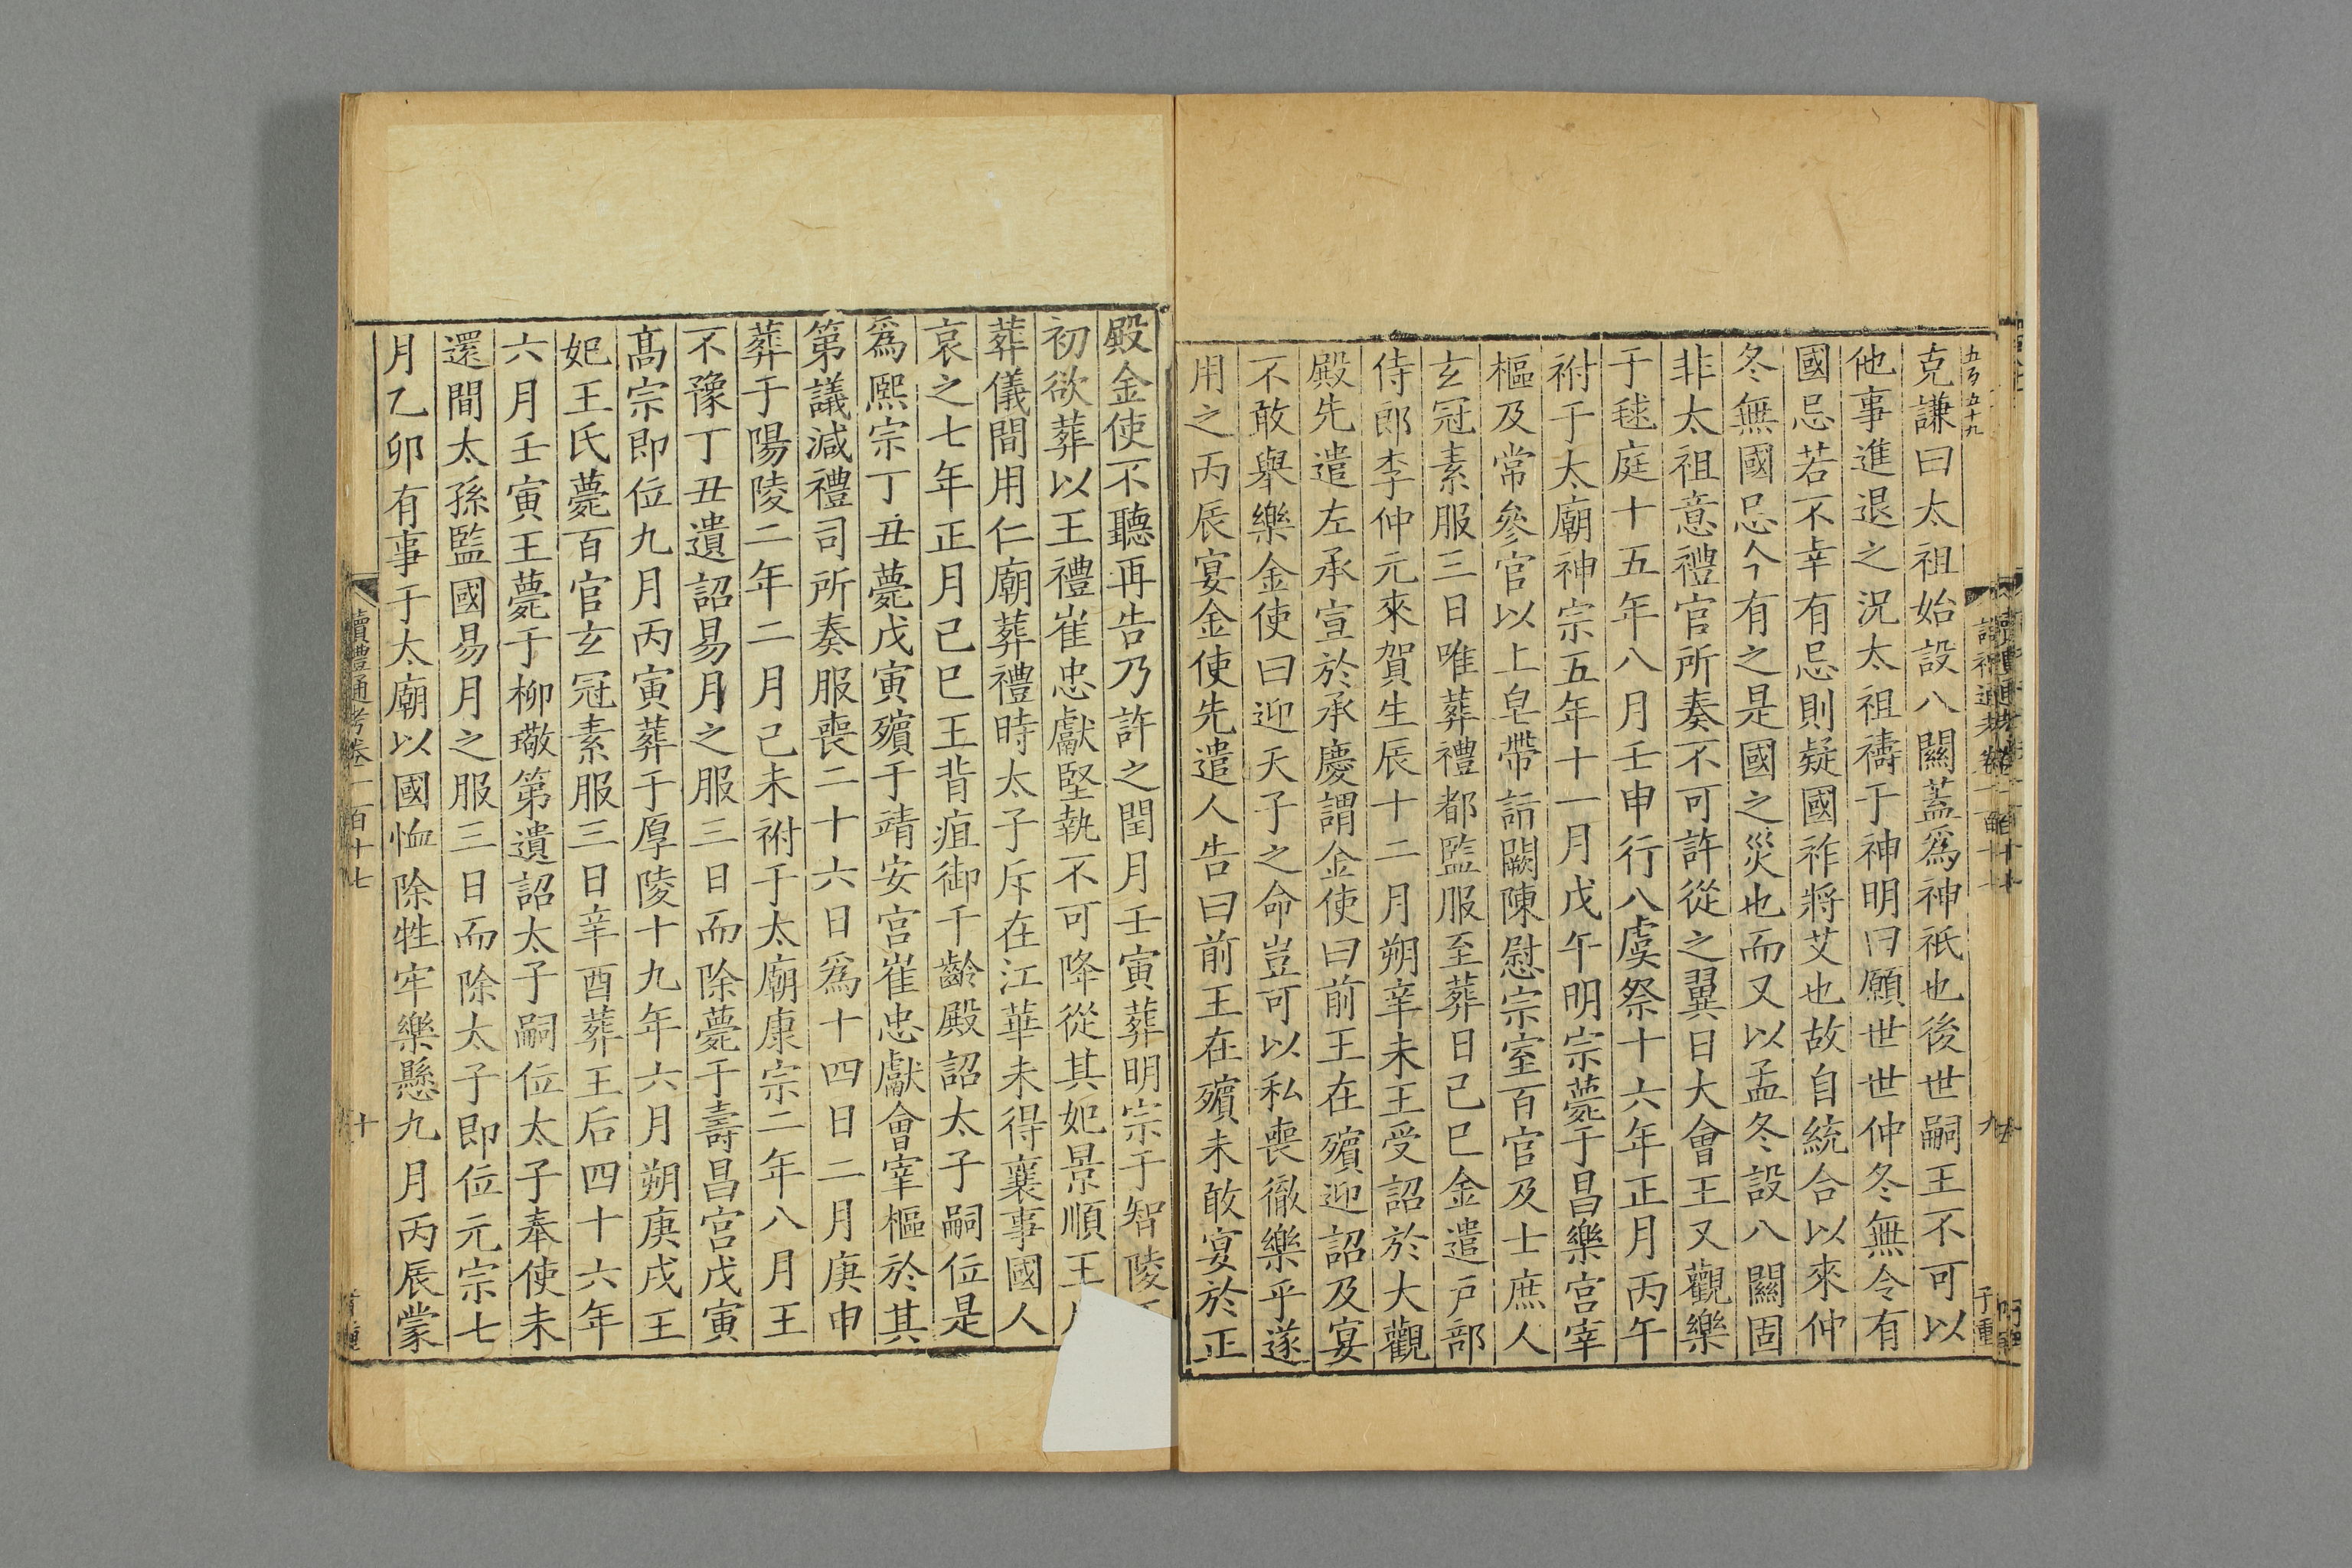 克謙曰太祖始設八關蓋爲神祇也後世嗣王不可以
他事進退之況太祖禱于神明曰願世世仲冬無令有
國忌若不幸有忌則疑國祚將艾也故自統合以來仲
冬無國忌今有之是國之災也而又以孟冬設八關固
非太祖意禮官所奏不可許從之翼日大會王又觀樂
于毬庭十五年八月壬申行八虞祭十六年正月丙午
祔于太廟神宗五年十一月戊午明宗薨于昌樂宮宰
樞及常參官以上皂帶詣闕陳慰宗室百官及士庶人
玄冠素服三日唯葬禮都監服至葬日己巳金遣戶部
侍郎李仲元來賀生辰十二月朔辛未王受詔於大觀
殿先遣左承宣於承慶謂金使曰前王在殯迎詔及宴
不敢舉樂金使曰迎天子之命豈可以私喪徹樂乎遂
用之丙辰宴金使先遣人告曰前王在殯未敢宴於正
殿金使不聽再告乃許之閏月壬寅葬明宗于智陵
初欲葬以王禮崔忠獻堅執不可降從其妃景順王
葬儀間用仁廟葬禮時太子斥在江華未得襄事國人
哀之七年正月己巳王背疽御千齡殿詔太子嗣位是
爲熙宗丁丑薨戊寅殯于靖安宮崔忠獻會宰樞於其
第議減禮司所奏服喪二十六日爲十四日二月庚申
葬于陽陵二年二月己未祔于太廟康宗二年八月王
不豫丁丑遺詔易月之服三日而除薨于壽昌宮戊寅
高宗即位九月丙寅葬于厚陵十九年六月朔庚戌王
妃王氏薨百官玄冠素服三日辛酉葬王后四十六年
六月壬寅王薨于柳璥第遺詔太子嗣位太子奉使未
還間太孫監國易月之服三日而除太子即位元宗七
月乙卯有事于太廟以國恤除牲牢樂懸九月丙辰蒙
讀禮通考卷一百十七
十